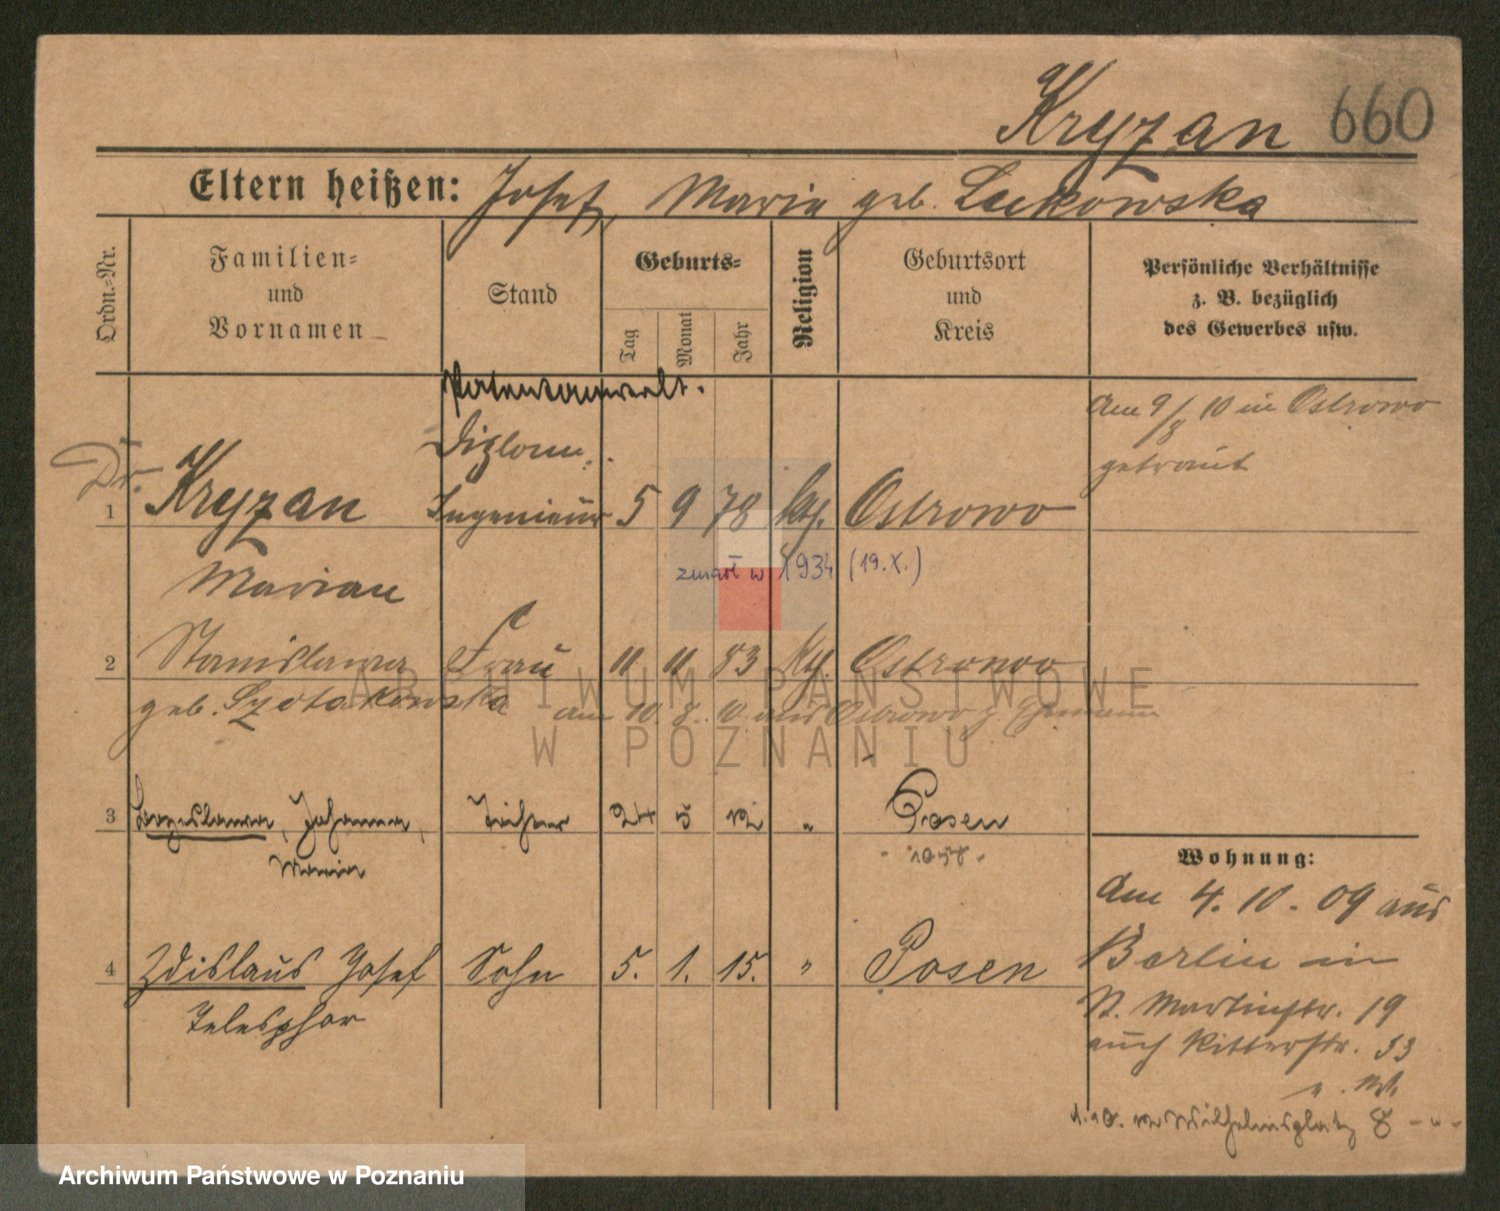 Kryzan 660
Eltern heißen: Josef, Maria geb. Lukowska
Ordn.-Nr.
Familien-
und
Vornamen
Stand
Geburts-
Tag
Monat
Jahr
Religion
Geburtsort
und
Kreis
Persönliche Verhältnisse
z. B. bezüglich
des Gewerbes usw.
Patentanwalt.
Am 9/8 10 in Ostrowo
getraut
Diplom.
Dr.
1 Kryzan Ingenieur 5 9 78 kg. Ostrowo
zmarł w 1934 (19.X.)
Marian
2 Stanislawa Frau 11 11 83 kg. Ostrowo
geb. am 10. 8. 10 aus Ostrowo z. Ehemann
3 Johanna, Tochter 24 5 12 " Posen
Maria
Wohnung:
Am 4. 10. 09 aus
4 Zdislaus Josef Sohn 5. 1. 15. " Posen
Berlin in
Telesphor
St. Martinstr. 19
auch Ritterstr. 33
1.10. Wilhelmsplatz 8 - " -
ARCHIWUM PAŃSTWOWE
W POZNANIU
Archiwum Państwowe w Poznaniu